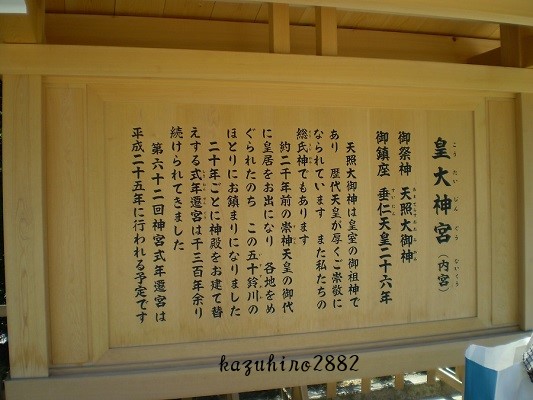 皇大神宮（内宮）
御祭神　天照大御神
御鎮座　垂仁天皇二十六年
天照大御神は皇室の御祖神で
あり　歴代天皇が厚くご崇敬に
なられています　また私たちの
総氏神でもあります
約二千年前の崇神天皇の御代
に皇居をお出になり　各地をめ
ぐられたのち　この五十鈴川の
ほとりにお鎮まりになりました
二十年ごとに神殿をお建て替
えする式年遷宮は千三百年余り
続けられてきました
第六十二回神宮式年遷宮は
平成二十五年に行われる予定です
kazuhiro2882